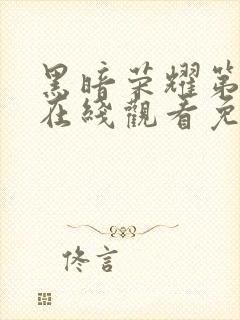 黑暗荣耀第
在线觀看免
佟言